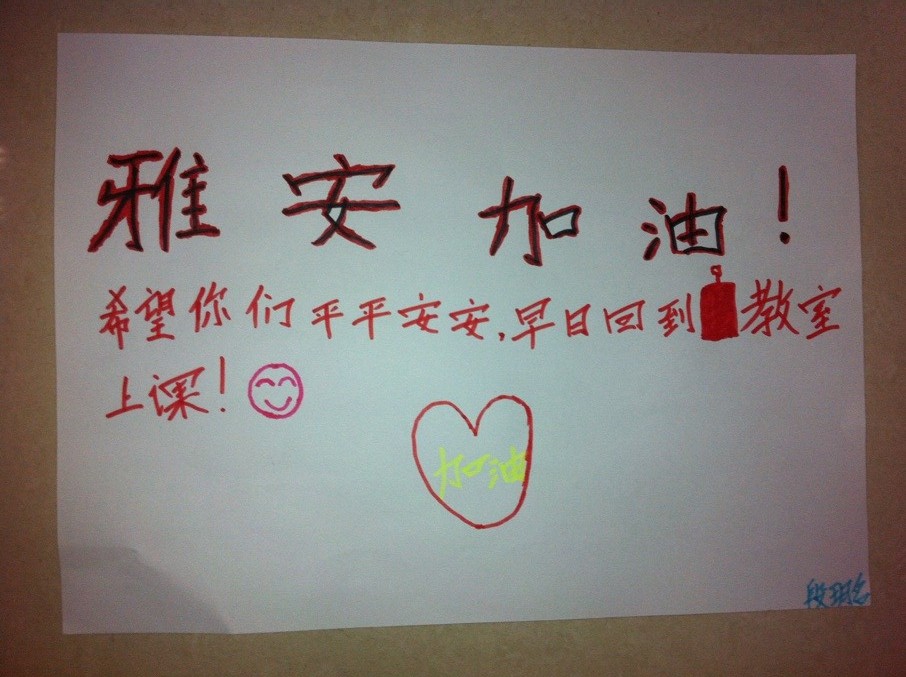 雅安加油!
希望你们平平安安,早日回到教室
上课!
加油